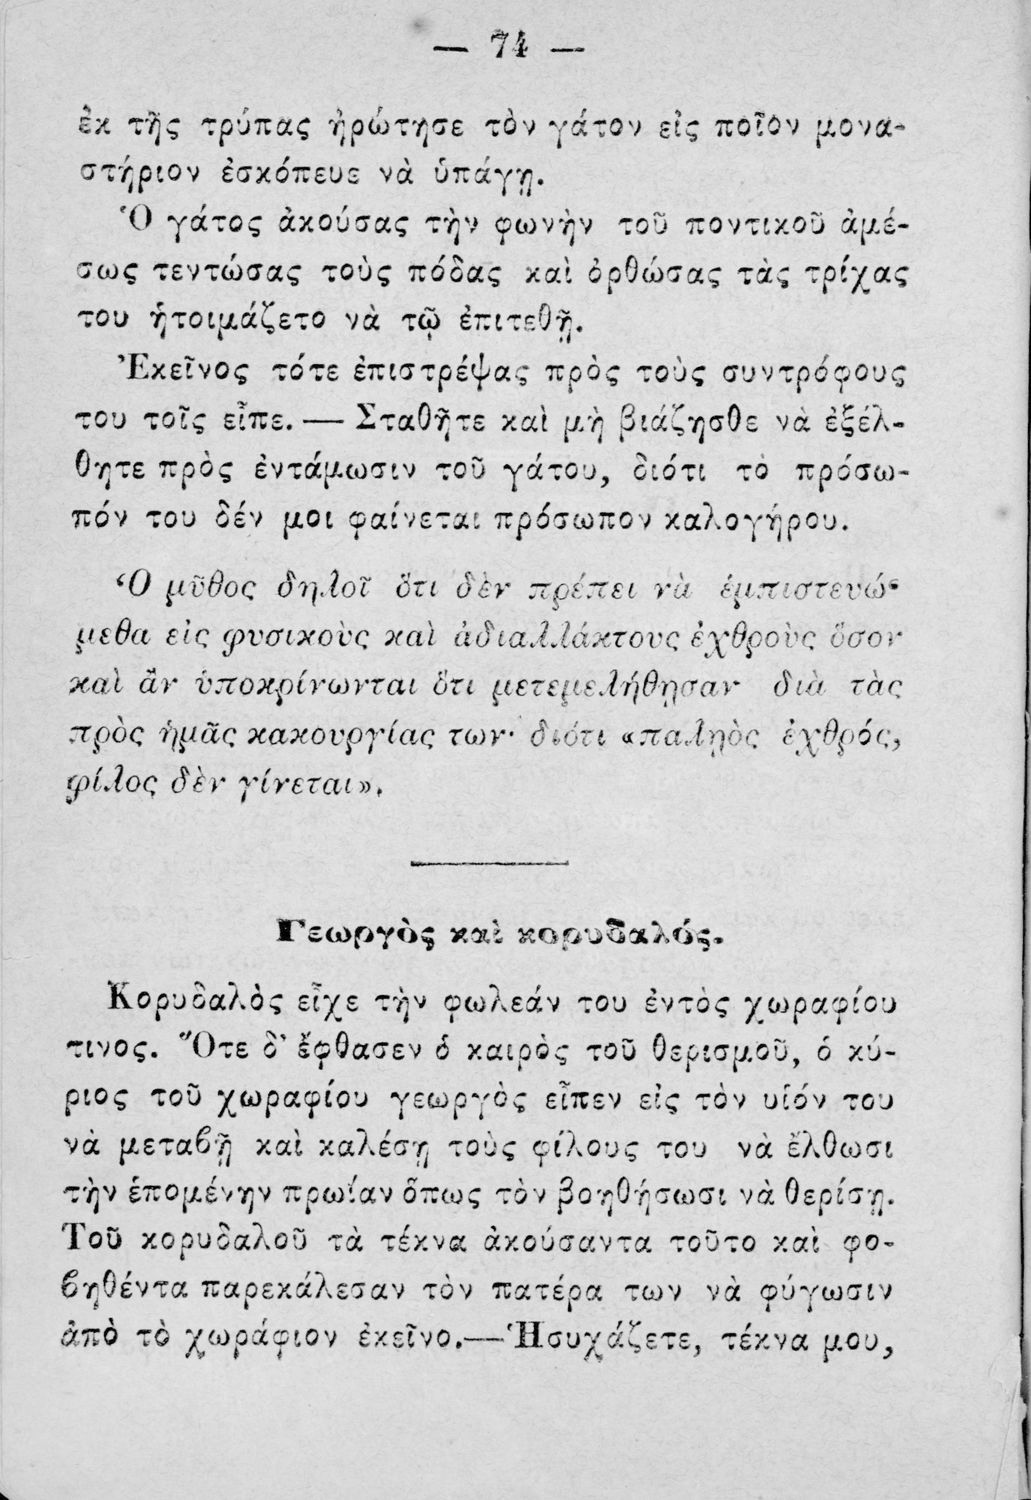 — 74 —
ἐκ τῆς τρύπας ἠρώτησε τὸν γάτον εἰς ποῖον μονα-
στήριον ἐσκόπευε νὰ ὑπάγῃ.
Ὁ γάτος ἀκούσας τὴν φωνὴν τοῦ ποντικοῦ ἀμέ-
σως τεντώσας τοὺς πόδας καὶ ὀρθώσας τὰς τρίχας
του ἡτοιμάζετο νὰ τῷ ἐπιτεθῇ.
Ἐκεῖνος τότε ἐπιστρέψας πρὸς τοὺς συντρόφους
του τοῖς εἶπε. — Σταθῆτε καὶ μὴ βιάζησθε νὰ ἐξέλ-
θητε πρὸς ἐντάμωσιν τοῦ γάτου, διότι τὸ πρόσω-
πόν του δέν μοι φαίνεται πρόσωπον καλογήρου.
Ὁ μῦθος δηλοῖ ὅτι δὲν πρέπει νὰ ἐμπιστευώ-
μεθα εἰς φυσικοὺς καὶ ἀδιαλλάκτους ἐχθροὺς ὅσον
καὶ ἂν ὑποκρίνωνται ὅτι μετεμελήθησαν διὰ τὰς
πρὸς ἡμᾶς κακουργίας των· διότι «παληὸς ἐχθρός,
φίλος δὲν γίνεται».
Γεωργὸς καὶ κορυδαλός.
Κορυδαλὸς εἶχε τὴν φωλεάν του ἐντὸς χωραφίου
τινος. Ὅτε δ' ἔφθασεν ὁ καιρὸς τοῦ θερισμοῦ, ὁ κύ-
ριος τοῦ χωραφίου γεωργὸς εἶπεν εἰς τὸν υἱόν του
νὰ μεταϐῇ καὶ καλέσῃ τοὺς φίλους του νὰ ἔλθωσι
τὴν ἑπομένην πρωίαν ὅπως τὸν βοηθήσωσι νὰ θερίσῃ.
Τοῦ κορυδαλοῦ τὰ τέκνα ἀκούσαντα τοῦτο καὶ φο-
ϐηθέντα παρεκάλεσαν τὸν πατέρα των νὰ φύγωσιν
ἀπὸ τὸ χωράφιον ἐκεῖνο.—Ἡσυχάζετε, τέκνα μου,